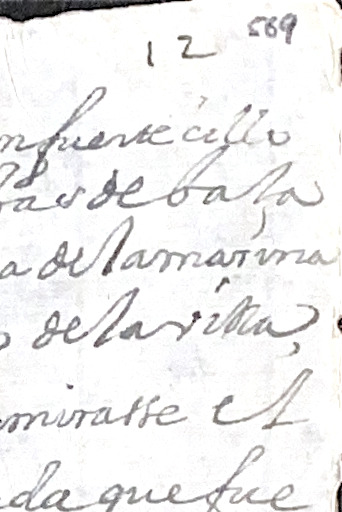 12 569
n fuerte cillo
bras de baja
a de la marina
de la villa,
mirasse el
da que fue